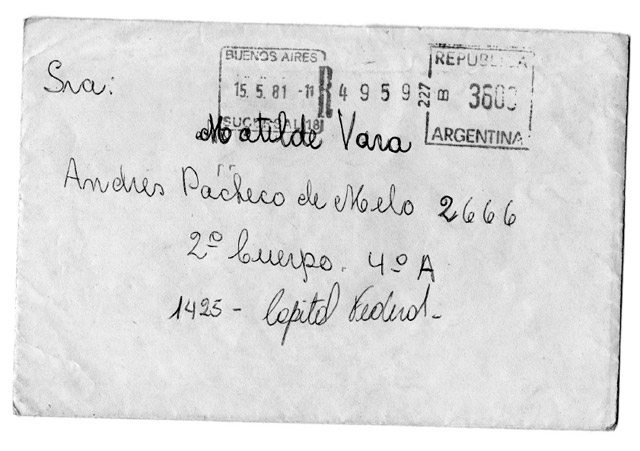 BUENOS AIRES
15.5.81 -11
SUCURSAL 18
R
4 9 5 9
227
B
REPUBLICA
3600
ARGENTINA
Sra:
Matilde Vara
Andrés Pacheco de Melo 2666
2º Cuerpo. 4º A
1425 - Capital Federal-